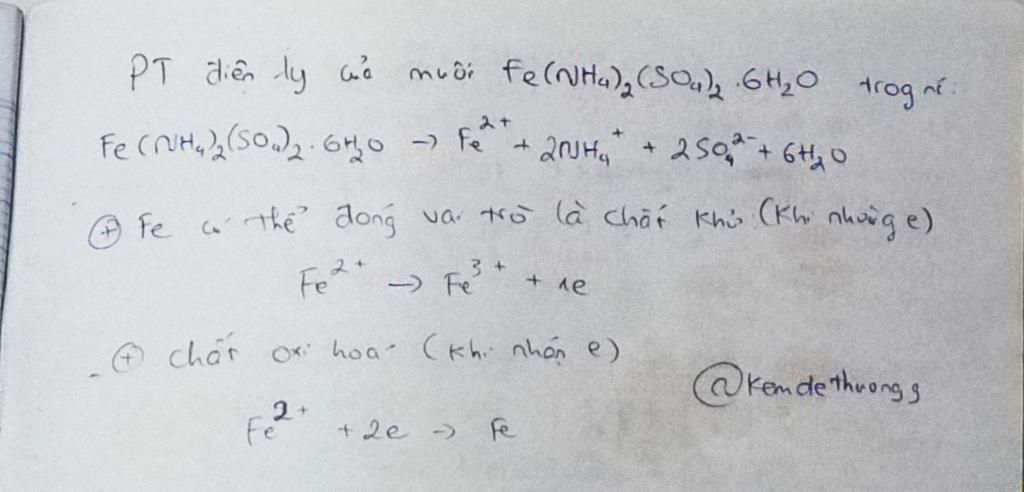 PT điện ly của muối Fe(NH₄)₂(SO₄)₂.6H₂O trog nc:
Fe(NH₄)₂(SO₄)₂.6H₂O → Fe²⁺ + 2NH₄⁺ + 2SO₄²⁻ + 6H₂O
⊕ Fe có thể đóng vai trò là chất khử (khi nhường e)
Fe²⁺ → Fe³⁺ + 1e
⊕ chất oxi hoá (khi nhận e)
@kemdethuongg
Fe²⁺ + 2e → Fe